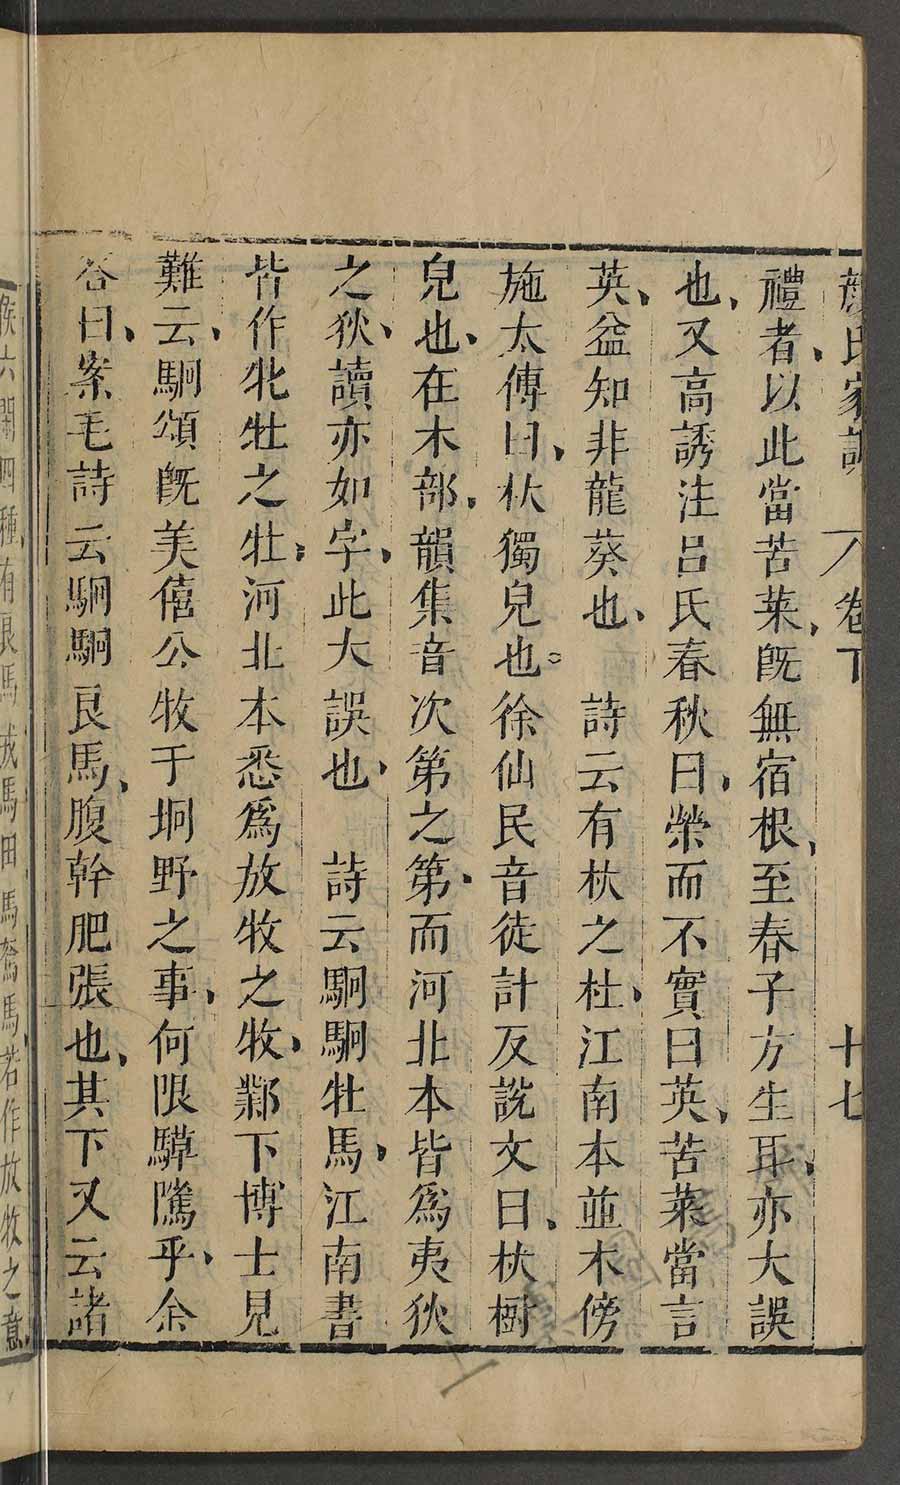 顔氏家訓 卷下 十七
禮者、以此當苦菜、旣無宿根、至春子方生耳、亦大誤
也、又高誘注呂氏春秋曰、榮而不實曰英、苦菜當言
英、益知非龍葵也、 詩云有杕之杜、江南本並木傍
施太傳曰、杕獨皃也。徐仙民音徒計反說文曰、杕樹
皃也、在木部、韻集音次第之第、而河北本皆爲夷狄
之狄、讀亦如字、此大誤也、 詩云駉駉牡馬、江南書
皆作牝牡之牡、河北本悉爲放牧之牧、鄴下博士見
難云、駉頌旣美僖公牧于坰野之事、何限騲騭乎、余
答曰、案毛詩云駉駉良馬、腹幹肥張也、其下又云諸
侯六閑四種有良馬戎馬田馬駑馬若作放牧之意